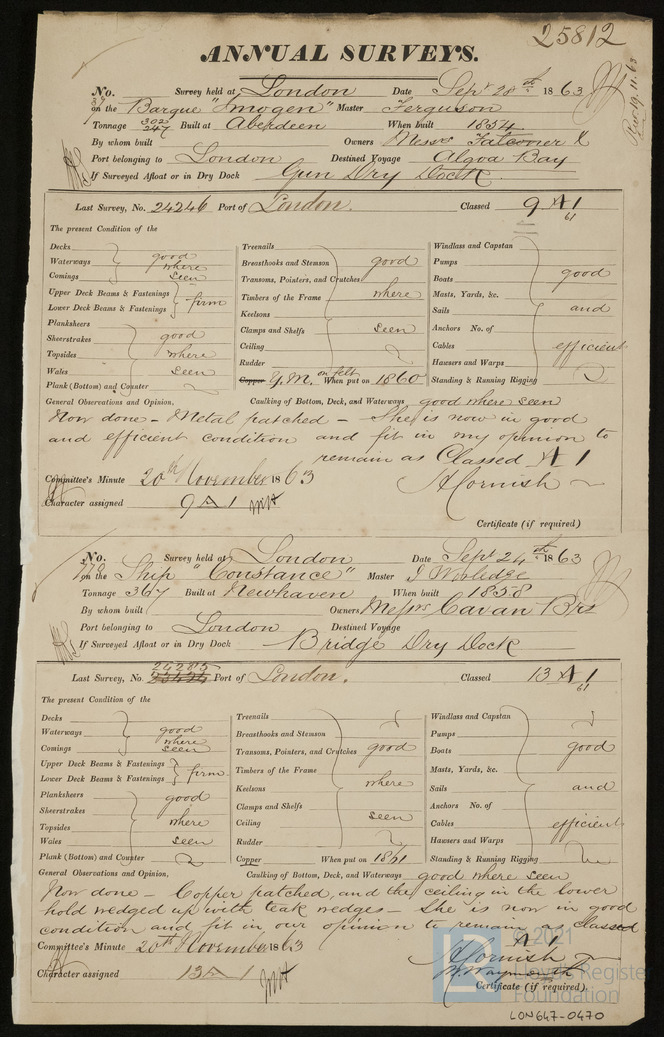 25812
ANNUAL SURVEYS.
No. 37 Survey held at London Date Sept 28th 1863
on the Barque "Imogen" Master Ferguson
Tonnage 302/247 Built at Aberdeen When built 1854
By whom built Owners Messrs Falconer &
Port belonging to London Destined Voyage Algoa Bay
If Surveyed Afloat or in Dry Dock Gun Dry Dock
Last Survey, No. 24246 Port of London. Classed 9 A 1 61
The present Condition of the
Decks Treenails Windlass and Capstan
Waterways good where seen Breasthooks and Stemson good Pumps
Comings Transoms, Pointers, and Crutches Boats good
Upper Deck Beams & Fastenings firm Timbers of the Frame where Masts, Yards, &c.
Lower Deck Beams & Fastenings Keelsons Sails and
Planksheers good Clamps and Shelfs seen Anchors No. of
Sheerstrakes
Topsides where Ceiling Cables efficient
Wales seen Rudder Hawsers and Warps
Plank (Bottom) and Counter Copper Y.M. on felt When put on 1860 Standing & Running Rigging
General Observations and Opinion. Caulking of Bottom, Deck, and Waterways good where seen
Now done - Metal patched - She is now in good
and efficient condition and fit in my opinion to
remain as Classed A 1
Committee's Minute 20th November 1863 A Cornish
Character assigned 9 A 1
Certificate (if required)
No. 778 Survey held at London Date Sept 24th 1863
on the Ship "Constance" Master J
Tonnage 367 Built at Newhaven When built 1858
By whom built Owners Messrs Cavan Brs
Port belonging to London Destined Voyage
If Surveyed Afloat or in Dry Dock Bridge Dry Dock
24285
Last Survey, No. Port of London. Classed 13 A 1 61
The present Condition of the
Decks Treenails Windlass and Capstan
Waterways good where seen Breasthooks and Stemson Pumps
Comings Transoms, Pointers, and Crutches good Boats good
Upper Deck Beams & Fastenings firm Timbers of the Frame Masts, Yards, &c.
Lower Deck Beams & Fastenings Keelsons where Sails and
Planksheers good Clamps and Shelfs Anchors No. of
Sheerstrakes
Topsides where Ceiling seen Cables efficient
Wales seen Rudder Hawsers and Warps
Plank (Bottom) and Counter Copper When put on 1861 Standing & Running Rigging
General Observations and Opinion. Caulking of Bottom, Deck, and Waterways good where seen
Now done - Copper patched, and the ceiling in the lower
hold wedged up with teak wedges - She is now in good
condition and fit in our opinion to remain as Classed
A 1
Committee's Minute 20th November 1863 A Cornish
Character assigned 13 A 1
Certificate (if required)
© 2021
Lloyd's Register
Foundation
LON647-0470